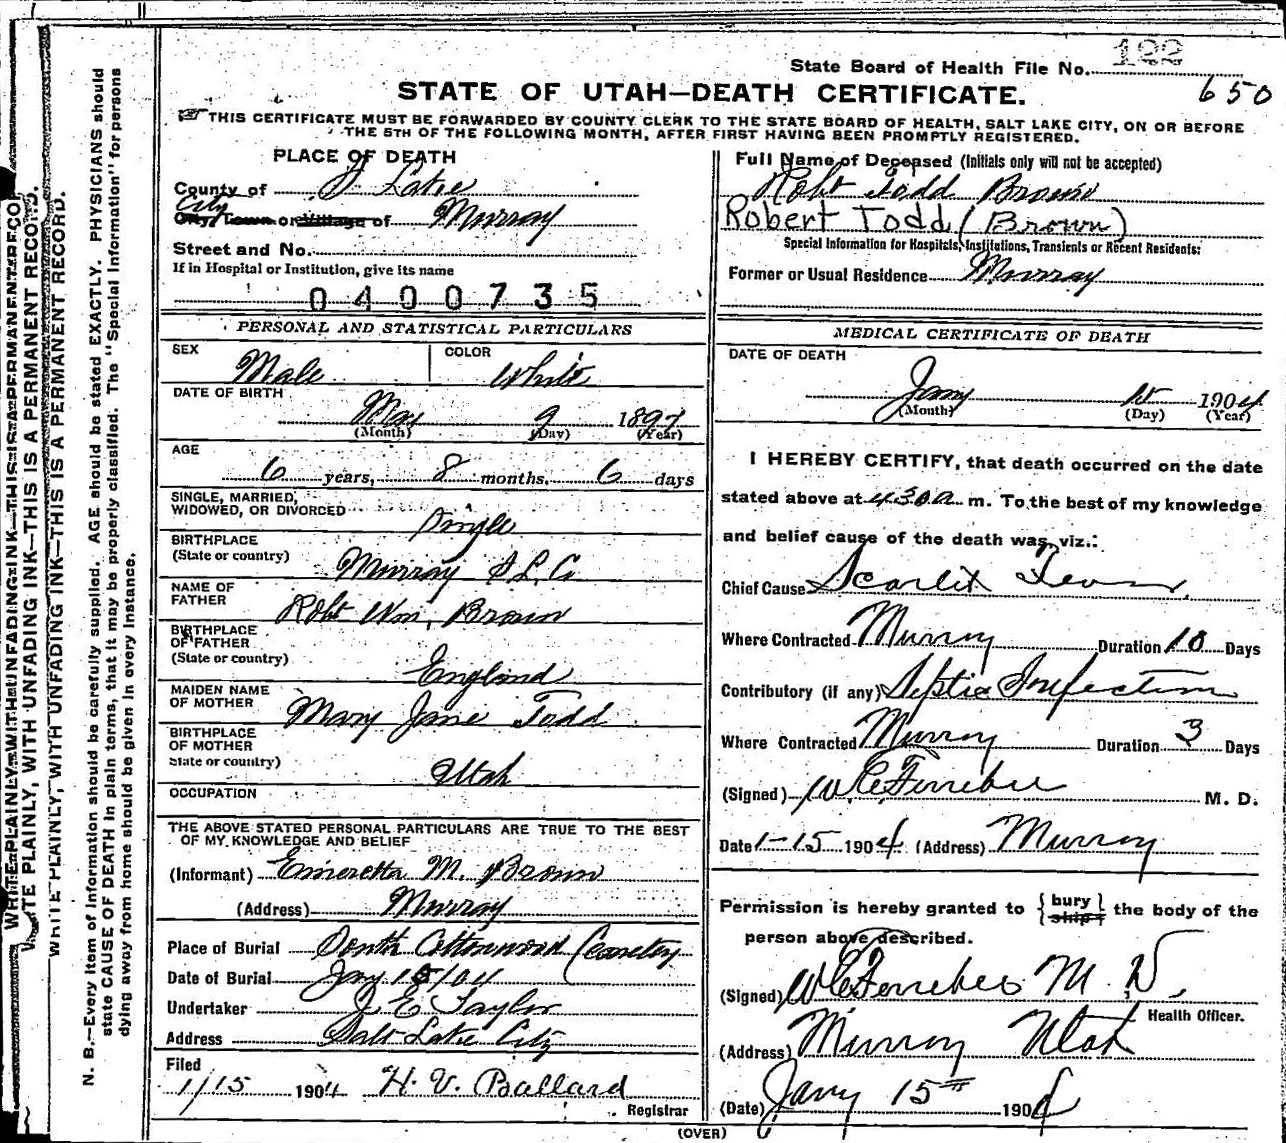 State Board of Health File No. 122
650
STATE OF UTAH—DEATH CERTIFICATE.
THIS CERTIFICATE MUST BE FORWARDED BY COUNTY CLERK TO THE STATE BOARD OF HEALTH, SALT LAKE CITY, ON OR BEFORE
THE 5TH OF THE FOLLOWING MONTH, AFTER FIRST HAVING BEEN PROMPTLY REGISTERED.
PLACE OF DEATH
County of S Lake
City
City, Town or Village of Murray
Street and No.
If in Hospital or Institution, give its name
0400735
PERSONAL AND STATISTICAL PARTICULARS
SEX Male COLOR White
DATE OF BIRTH
May 9 1897
(Month) (Day) (Year)
AGE
6 years, 8 months, 6 days
SINGLE, MARRIED,
WIDOWED, OR DIVORCED Single
BIRTHPLACE
(State or country) Murray S L Co
NAME OF
FATHER Robt Wm. Brown
BIRTHPLACE
OF FATHER
(State or country) England
MAIDEN NAME
OF MOTHER Mary Jane Todd
BIRTHPLACE
OF MOTHER
State or country) Utah
OCCUPATION
THE ABOVE STATED PERSONAL PARTICULARS ARE TRUE TO THE BEST
OF MY KNOWLEDGE AND BELIEF
(Informant) Emeretta M. Brown
(Address) Murray
Place of Burial South Cottonwood Cemetery
Date of Burial Jany 15/04
Undertaker J. E. Taylor
Address Salt Lake City
Filed
1/15 1904 H. V. Ballard
Registrar
Full Name of Deceased (Initials only will not be accepted)
Robt Todd Brown
Robert Todd (Brown)
Special Information for Hospitals, Institutions, Transients or Recent Residents:
Former or Usual Residence Murray
MEDICAL CERTIFICATE OF DEATH
DATE OF DEATH
Jany 15 1904
(Month) (Day) (Year)
I HEREBY CERTIFY, that death occurred on the date
stated above at 430 a m. To the best of my knowledge
and belief cause of the death was, viz.:
Chief Cause Scarlet Fever
Where Contracted Murray Duration 10 Days
Contributory (if any) Septic Infection
Where Contracted Murray Duration 3 Days
(Signed) W C Ferrebee M. D.
Date 1-15 1904 (Address) Murray
Permission is hereby granted to {bury ship} the body of the
person above described.
(Signed) W C Ferrebee M. D.
Health Officer.
(Address) Murray Utah
(Date) Jany 15th 1904
(OVER)
WRITE PLAINLY, WITH UNFADING INK—THIS IS A PERMANENT RECORD.
WRITE PLAINLY, WITH UNFADING INK—THIS IS A PERMANENT RECORD.
WRITE PLAINLY, WITH UNFADING INK—THIS IS A PERMANENT RECORD.
N. B.—Every item of Information should be carefully supplied. AGE should be stated EXACTLY. PHYSICIANS should
state CAUSE OF DEATH in plain terms, that it may be properly classified. The "Special Information" for persons
dying away from home should be given in every instance.